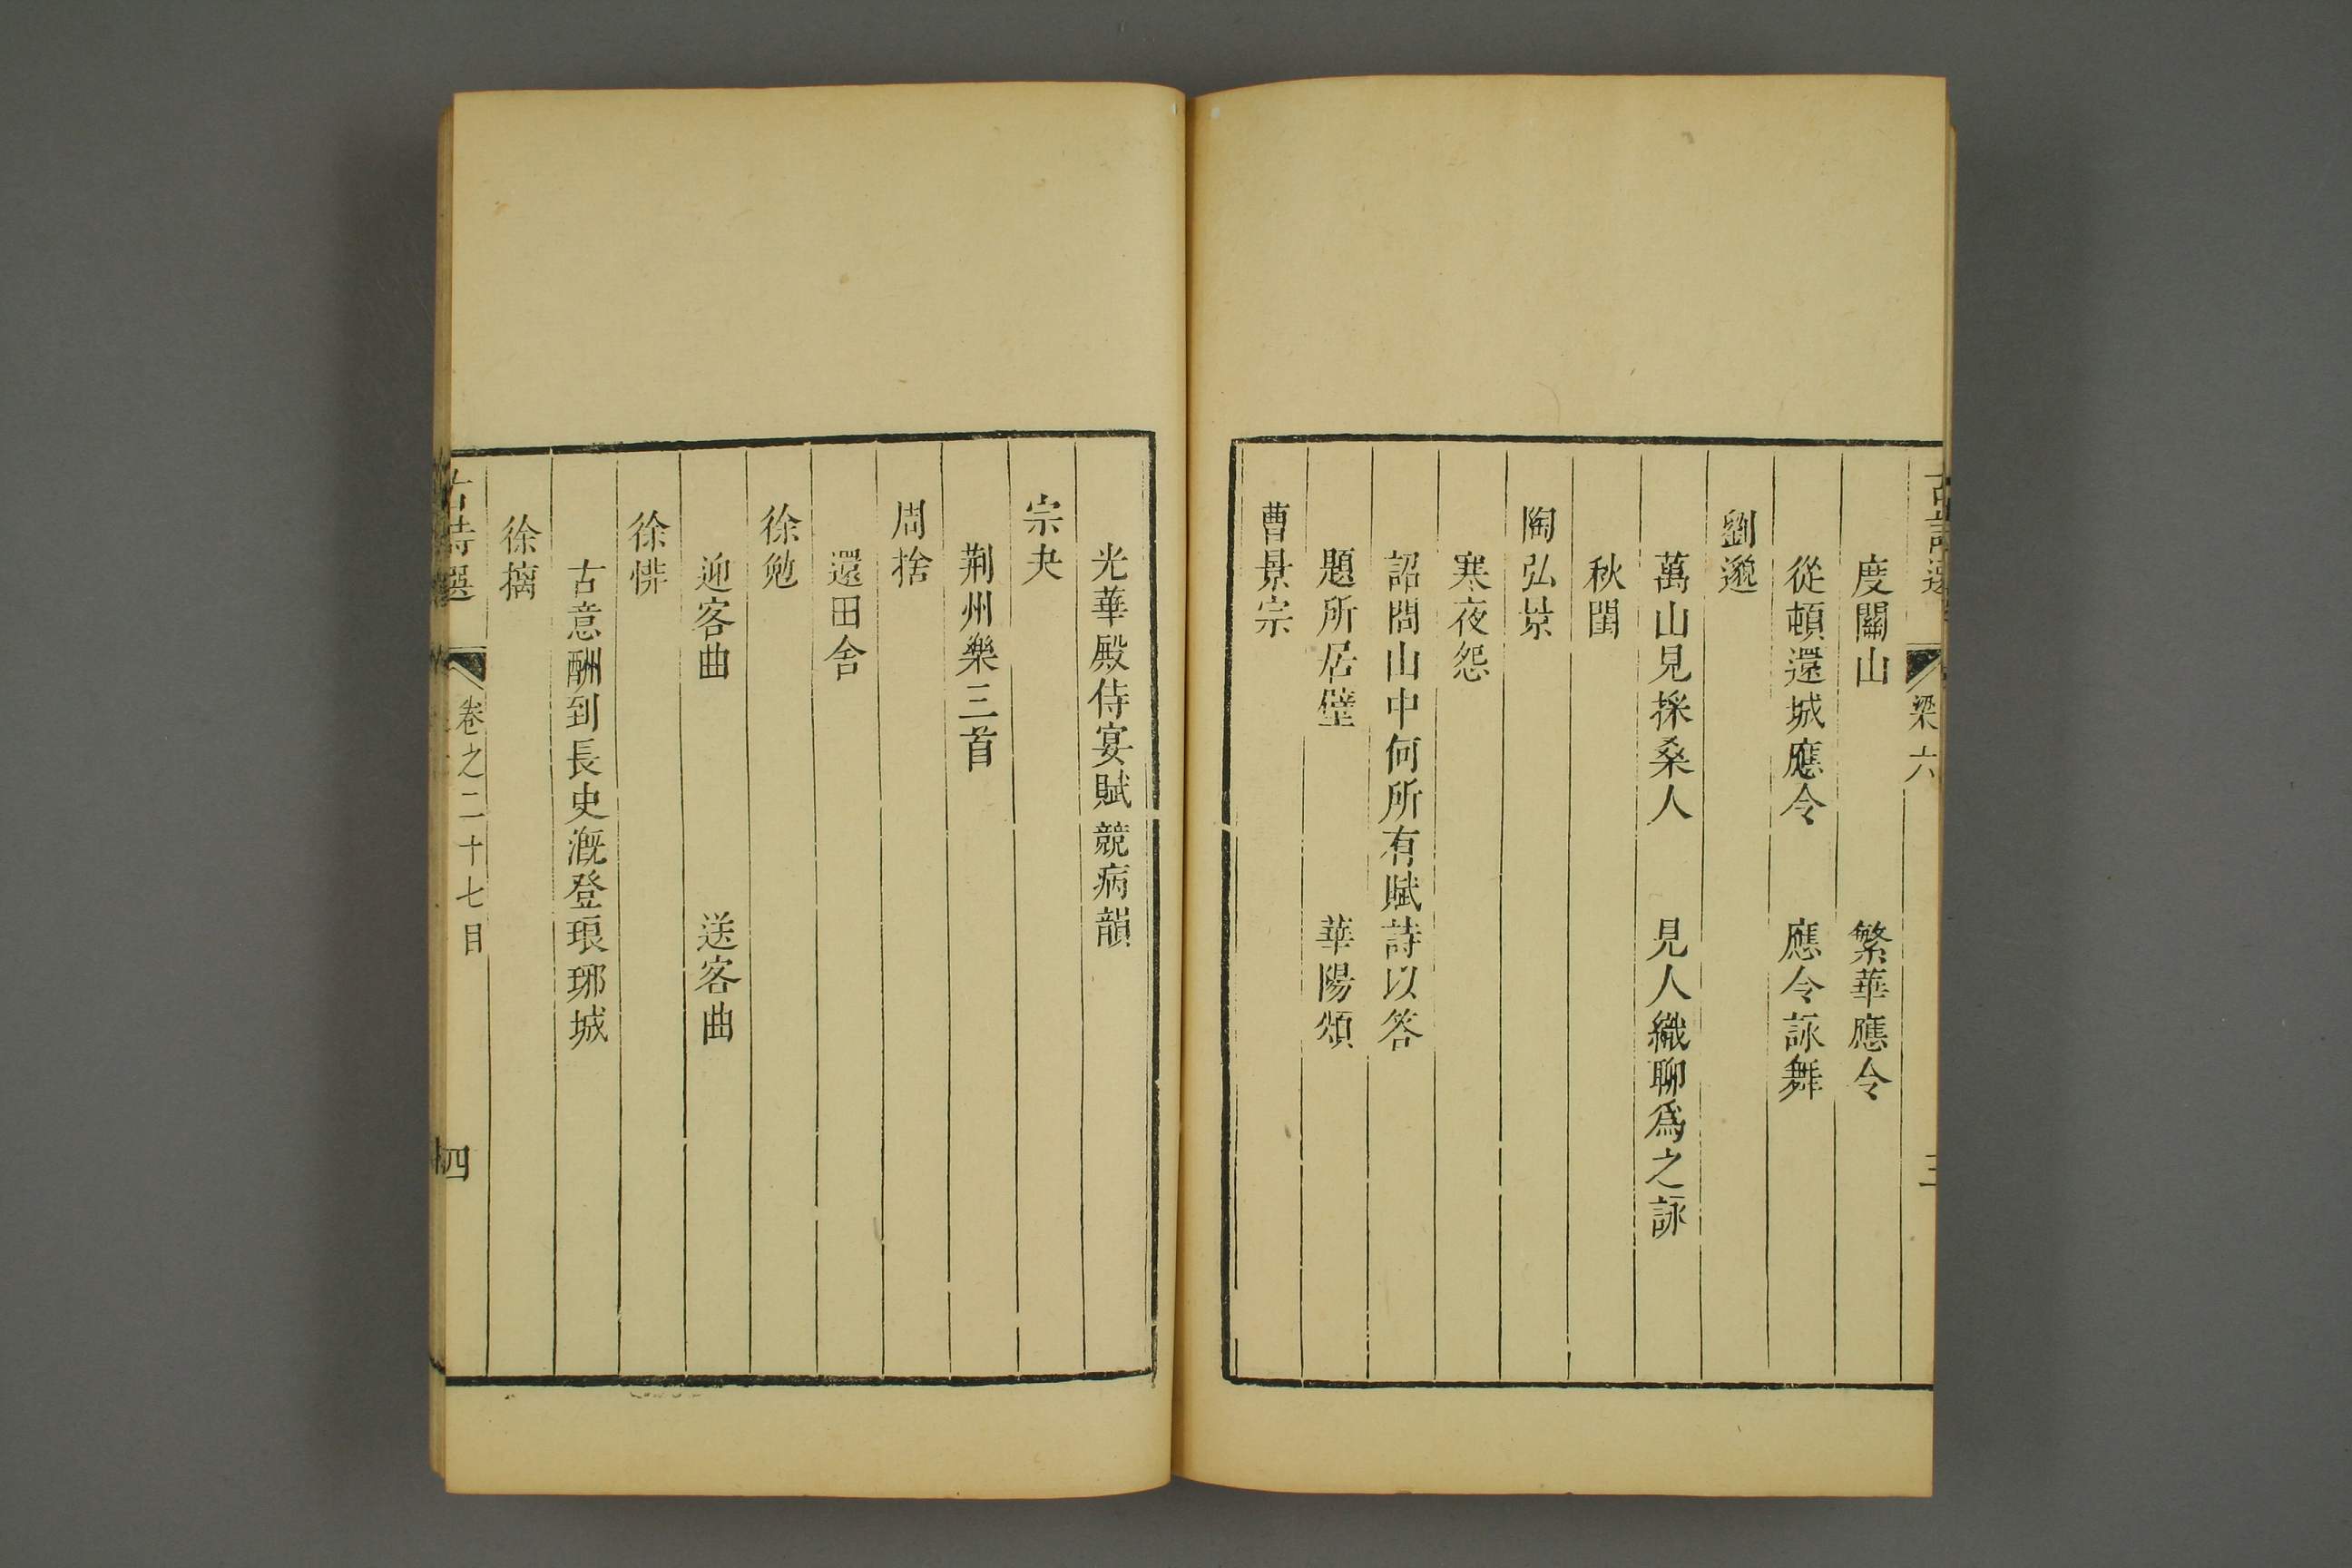 梁六
度關山 繁華應令
從頓還城應令 應令詠舞
劉邈
萬山見採桑人 見人織聊爲之詠
秋閨
陶弘景
寒夜怨
詔問山中何所有賦詩以答
題所居壁 華陽頌
曹景宗
光華殿侍宴賦競病韻
宗夬
荆州樂三首
周捨
還田舍
徐勉
迎客曲 送客曲
徐悱
古意酬到長史溉登琅琊城
徐摛
古詩選 卷之二十七目 四